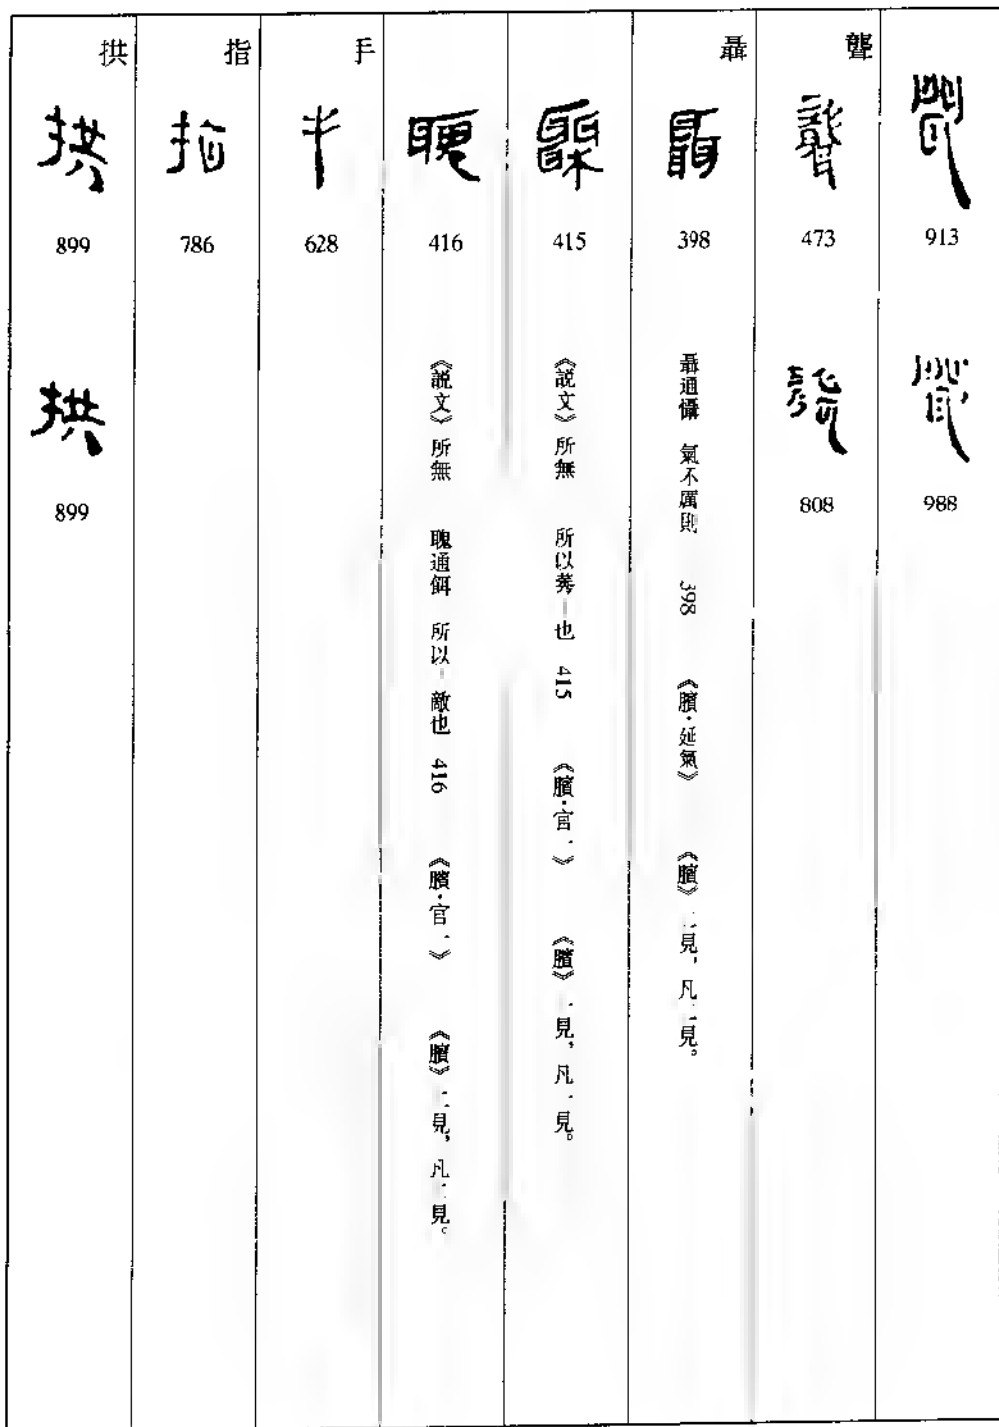 913 988
聾 473 808
聶 398 聶通懾 氣不厲則 398 《臏·延氣》 《臏》二見，凡二見。
415 《説文》所無 所以莠—也 415 《臏·官一》 《臏》一見，凡一見。
416 《説文》所無 聭通餌 所以—敵也 416 《臏·官一》 《臏》二見，凡二見。
手 628
指 指 786
拱 拱 899 拱 899